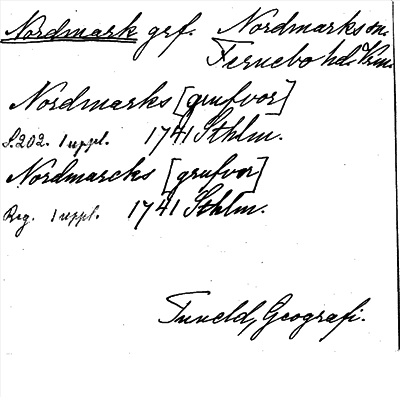 Nordmark grf. Nordmarks sn.
Fernebo hd. Vrm.
Nordmarks [grufvor]
S.202. 1 uppl. 1741 Sthlm.
Nordmarcks [grufvor]
Reg. 1 uppl. 1741 Sthlm.
Tuneld, Geografi.